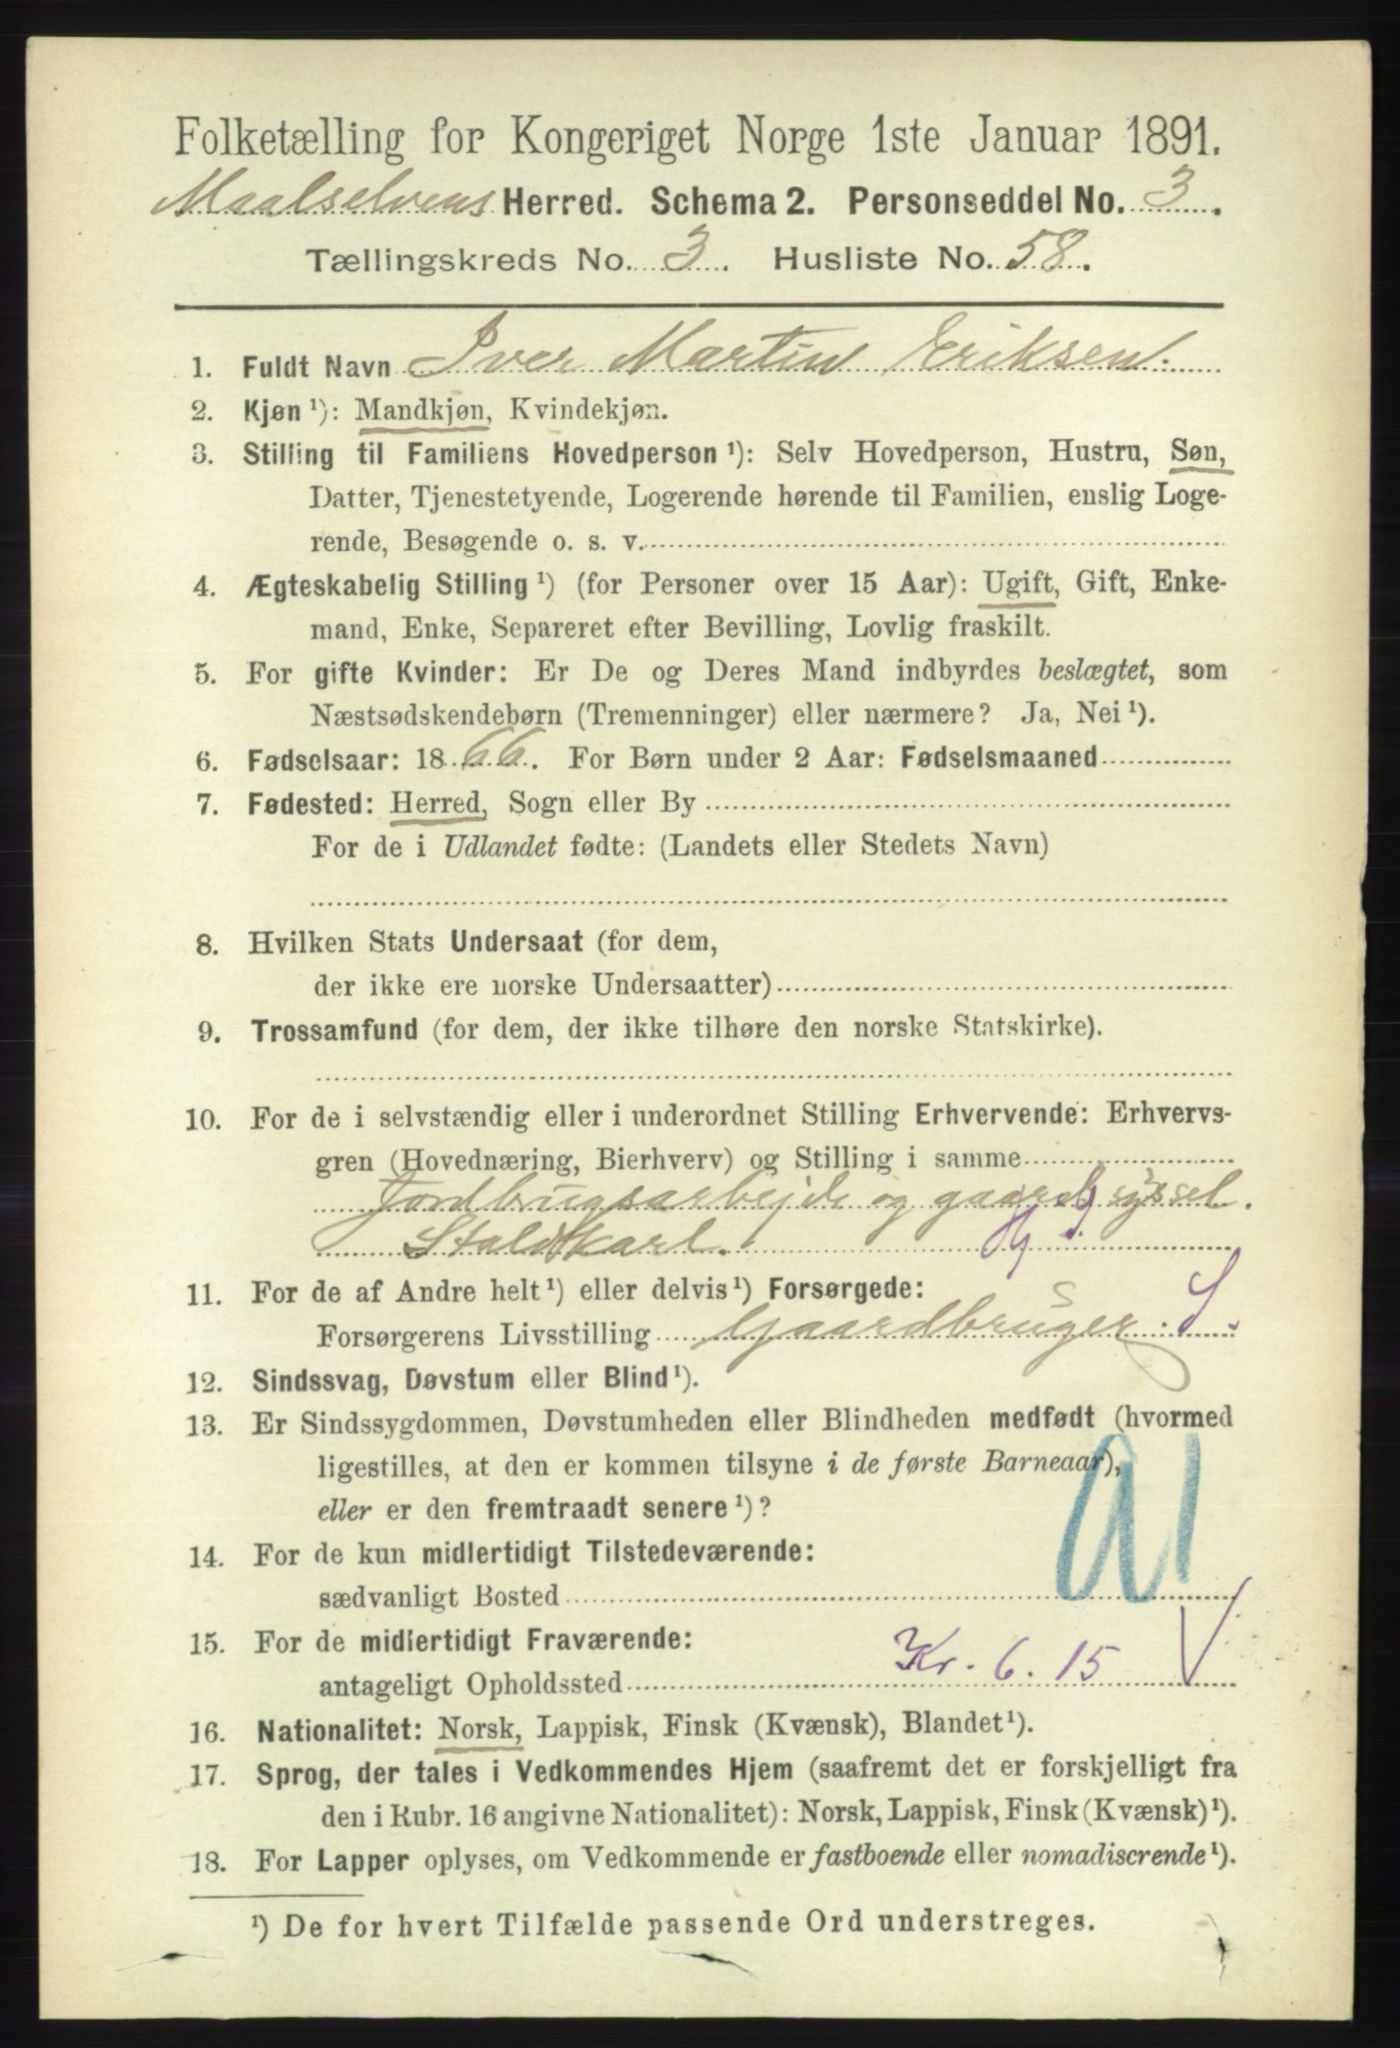 Folketælling for Kongeriget Norge 1ste Januar 1891.
Maalselvens Herred. Schema 2. Personseddel No. 3.
Tællingskreds No. 3. Husliste No. 58.
1. Fuldt Navn Iver Martin Eriksen.
2. Kjøn ¹): Mandkjøn, Kvindekjøn.
3. Stilling til Familiens Hovedperson ¹): Selv Hovedperson, Hustru, Søn,
Datter, Tjenestetyende, Logerende hørende til Familien, enslig Loge-
rende, Besøgende o. s. v.
4. Ægteskabelig Stilling ¹) (for Personer over 15 Aar): Ugift, Gift, Enke-
mand, Enke, Separeret efter Bevilling, Lovlig fraskilt.
5. For gifte Kvinder: Er De og Deres Mand indbyrdes beslægtet, som
Næstsødskendebørn (Tremenninger) eller nærmere? Ja, Nei ¹).
6. Fødselsaar: 1866. For Børn under 2 Aar: Fødselsmaaned
7. Fødested: Herred, Sogn eller By
For de i Udlandet fødte: (Landets eller Stedets Navn)
8. Hvilken Stats Undersaat (for dem,
der ikke ere norske Undersaatter)
9. Trossamfund (for dem, der ikke tilhøre den norske Statskirke).
10. For de i selvstændig eller i underordnet Stilling Erhvervende: Erhvervs-
gren (Hovednæring, Bierhverv) og Stilling i samme
Jordbrugsarbejde og gaardssyssel.
Staldkarl.
11. For de af Andre helt ¹) eller delvis ¹) Forsørgede:
Forsørgerens Livsstilling Gaardbruger. S.
12. Sindssvag, Døvstum eller Blind ¹).
13. Er Sindssygdommen, Døvstumheden eller Blindheden medfødt (hvormed
ligestilles, at den er kommen tilsyne i de første Barneaar),
eller er den fremtraadt senere ¹)?
14. For de kun midlertidigt Tilstedeværende:
sædvanligt Bosted
15. For de midlertidigt Fraværende:
antageligt Opholdssted Kr. 6. 15
16. Nationalitet: Norsk, Lappisk, Finsk (Kvænsk), Blandet ¹).
17. Sprog, der tales i Vedkommendes Hjem (saafremt det er forskjelligt fra
den i Rubr. 16 angivne Nationalitet): Norsk, Lappisk, Finsk (Kvænsk) ¹).
18. For Lapper oplyses, om Vedkommende er fastboende eller nomadiserende ¹).
¹) De for hvert Tilfælde passende Ord understreges.